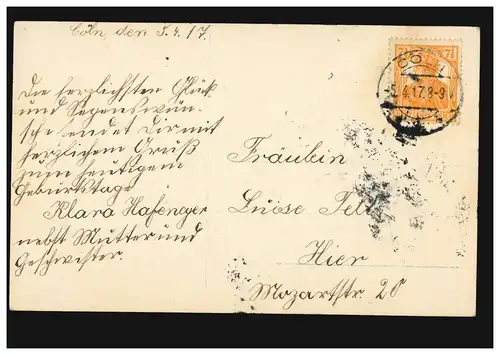 Cöln, den 5.4.17.
Die herzlichsten Glück
und Segenswün-
sche sendet Dir mit
herzlichem Gruß
zum heutigem
Geburtstage
Klara Hafeneger
nebst Mutter und
Geschwister.
7½
CÖLN
4.17.8-9
Fräulein
Luise
Hier
Mozartstr. 28